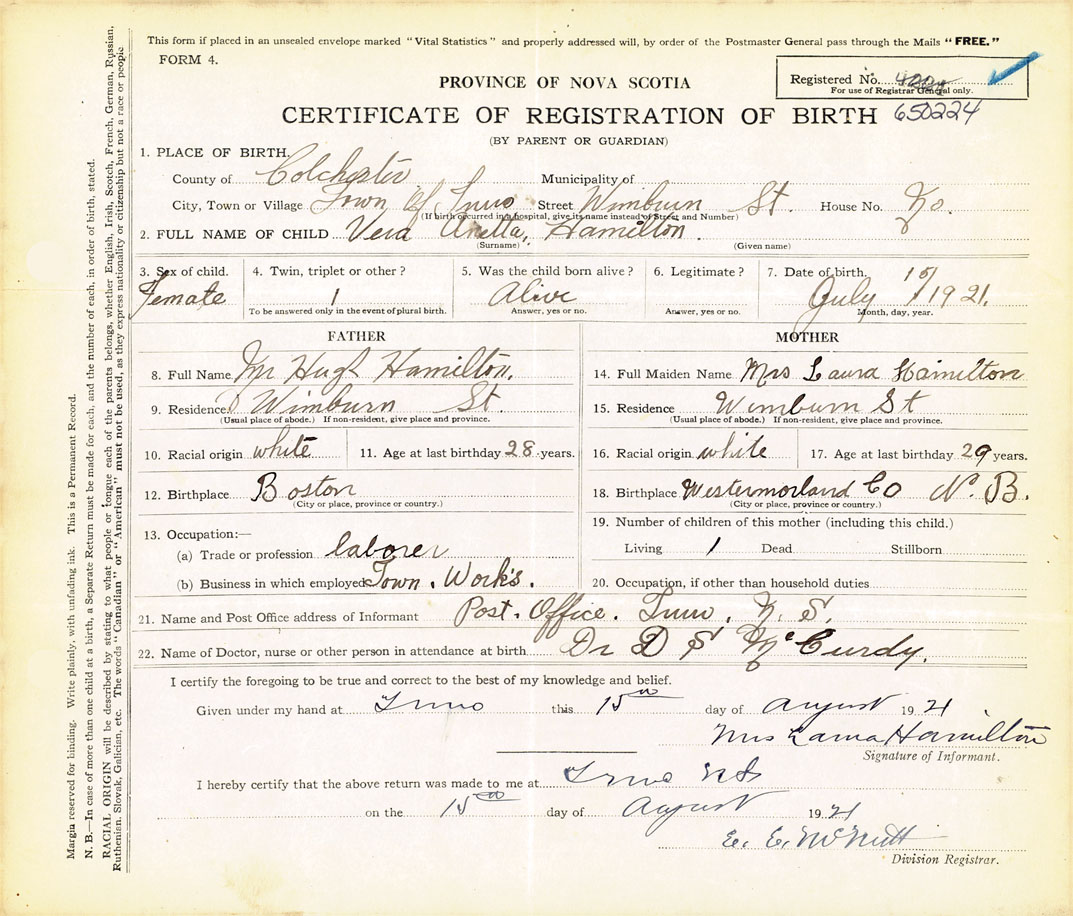 This form if placed in an unsealed envelope marked "Vital Statistics" and properly addressed will, by order of the Postmaster General pass through the Mails "FREE."
FORM 4.
Registered No.
For use of Registrar General only.
PROVINCE OF NOVA SCOTIA
CERTIFICATE OF REGISTRATION OF BIRTH 650224
(BY PARENT OR GUARDIAN)
1. PLACE OF BIRTH.
County of Colchester Municipality of
City, Town or Village Town of Truro Street Wimburn St. House No. No.
(If birth occurred in a hospital, give its name instead of Street and Number)
2. FULL NAME OF CHILD Vera Hamilton.
(Surname) (Given name)
3. Sex of child. 4. Twin, triplet or other? 5. Was the child born alive? 6. Legitimate? 7. Date of birth.
Female 1 Alive July 15/1921.
To be answered only in the event of plural birth. Answer, yes or no. Answer, yes or no. Month, day, year.
FATHER
8. Full Name Mr Hugh Hamilton.
9. Residence Wimburn St.
(Usual place of abode.) If non-resident, give place and province.
10. Racial origin white 11. Age at last birthday 28 years.
12. Birthplace Boston
(City or place, province or country.)
13. Occupation:—
(a) Trade or profession laborer
(b) Business in which employed Town. Work's.
MOTHER
14. Full Maiden Name Mrs Laura Hamilton
15. Residence Wimburn St
(Usual place of abode.) If non-resident, give place and province.
16. Racial origin white 17. Age at last birthday 29 years.
18. Birthplace Westermorland Co N.B.
(City or place, province or country.)
19. Number of children of this mother (including this child.)
Living 1 Dead Stillborn
20. Occupation, if other than household duties
21. Name and Post Office address of Informant Post. Office. Truro, N. S.
22. Name of Doctor, nurse or other person in attendance at birth Dr D S McCurdy.
I certify the foregoing to be true and correct to the best of my knowledge and belief.
Given under my hand at Truro this 15th day of August 1921
Mrs Laura Hamilton
Signature of Informant.
I hereby certify that the above return was made to me at Truro NS
on the 15th day of August 1921
E. E. McNutt
Division Registrar.
Margin reserved for binding. Write plainly, with unfading ink. This is a Permanent Record.
N. B.—In case of more than one child at a birth, a Separate Return must be made for each, and the number of each, in order of birth, stated.
RACIAL ORIGIN will be described by stating to what people or tongue each of the parents belongs, whether English, Irish, Scotch, French, German, Russian,
Ruthenian, Slovak, Galician, etc. The words "Canadian" or "American" must not be used, as they express nationality or citizenship but not a race or people